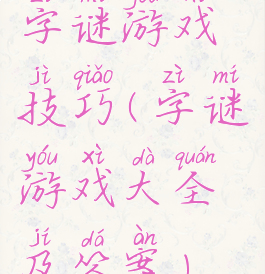 字谜游戏
jì qiǎo zì mí
技巧(字谜
yóu xì dà quán
游戏大全
jí dá àn
及答案)